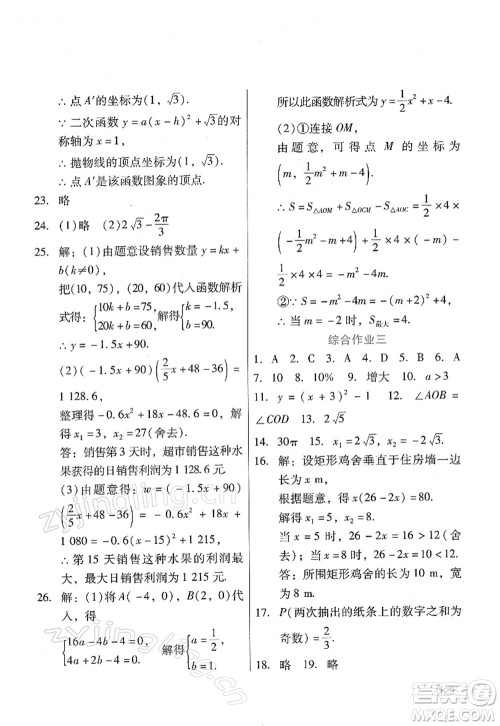 ∴ 点 A′的坐标为(1, √3).
∵ 二次函数 y=a(x-h)²+k 的对
称轴为 x=1,
∴ 抛物线的顶点坐标为(1, √3).
∴ 点 A′是该函数图象的顶点.
23. 略
24. (1)略 (2)2√3-2π/3
25. 解:(1)由题意设销售数量 y=kx+
b(k≠0),
把(10, 75), (20, 60)代入函数解析
式得:{10k+b=75, 20k+b=60, 解得{k=-1.5, b=90.
∴ y=-1.5x+90.
(2)(-1.5x+90)(2/5x+48-36)=
1 128.6,
整理得-0.6x²+18x-51.4=0,
解得 x₁=
答: 销售第
果所获得的日销售利润为 1 128.6 元.
(3)由题意得: w=(-1.5x+90)
(2/5x+48-36)=-0.6x²+18x+
1 080=-0.6(x-15)²+1 215,
∴ 第 15 天销售这种水果的利润最
大, 最大日销售利润为 1 215 元.
26. 解:(1)将A(-4, 0), B(2, 0)代
入, 得
{16a-4b-4=0, 4a+2b-4=0, 解得{a=1/2, b=1.
所以此函数解析式为 y=1/2x²+x-4.
(2)①连接 OM,
由题意, 可设点 M 的坐标为
(m, 1/2m²+m-4),
∴ S=S△AOM+S△OCM-S△AOC=1/2×4×
(-1/2m²-m+4)+1/2×4×(-m)-
1/2×4×4=-m²-4m.
②∵ S=-m²-4m=-(m+2)²+4,
∴ 当 m=-2 时, S最大=4.
综合作业三
1. A 2. C 3. A 4. C 5. B 6. A
7. 10 8. 10% 9. 增大 10. a>3
11. y=(x-1)²-2 12. ∠AOB=
∠COD 13. 2√5
14. 30π 15. x₁=2√3, x₂=√3
16. 解: 设矩形鸡舍垂直于住房墙一边
长为 x m,
根据题意, 可得 x(26-2x)=80,
解得: x₁=5, x₂=8,
当 x=5 时, 26-2x=16>12(舍去),
当 x=8 时, 26-2x=10<12,
答: 所围矩形鸡舍的长为 10 m, 宽
为 8 m.
17. P(两次抽出的纸条上的数字之和为
奇数)=4/9.
18. 略 19. 略
zyjl.cn